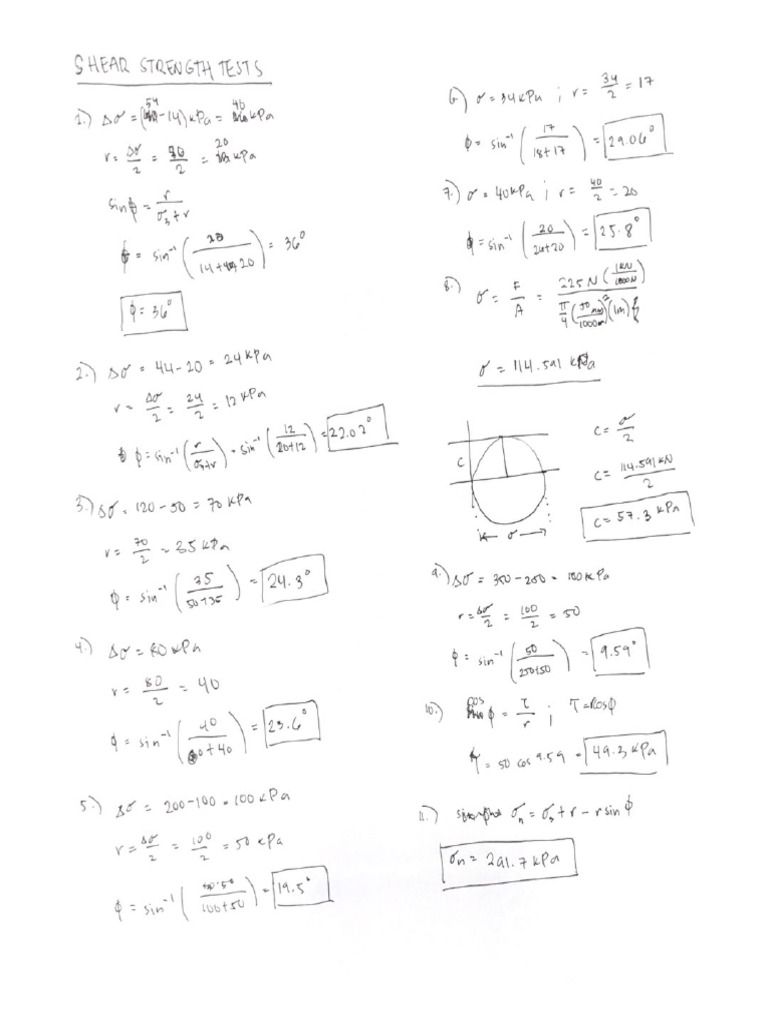 SHEAR STRENGTH TESTS
1.) Δσ = (54-14) kPa = 40 kPa
r = Δσ/2 = /2 = 20 kPa
sinϕ = r/(σ₃+r)
ϕ = sin⁻¹ (20/(14+20)) = 36°
ϕ = 36°
2.) Δσ = 44-20 = 24 kPa
r = Δσ/2 = 24/2 = 12 kPa
ϕ = sin⁻¹ (r/(σ₃+r)) = sin⁻¹ (12/(20+12)) = 22.02°
3.) Δσ = 120-50 = 70 kPa
r = 70/2 = 35 kPa
ϕ = sin⁻¹ (35/(50+35)) = 24.3°
4.) Δσ = 80 kPa
r = 80/2 = 40
ϕ = sin⁻¹ (40/(60+40)) = 23.6°
5.) Δσ = 200-100 = 100 kPa
r = Δσ/2 = 100/2 = 50 kPa
ϕ = sin⁻¹ (50/(100+50)) = 19.5°
6.) σ = 34 kPa ; r = 34/2 = 17
ϕ = sin⁻¹ (17/(18+17)) = 29.06°
7.) σ = 40 kPa ; r = 40/2 = 20
ϕ = sin⁻¹ (20/(26+20)) = 25.8°
8.) σ = F/A = 225 N (1kN/1000N) / π/4 (50 mm/1000m)² (1m)
σ = 114.591 kPa
c = σ/2
C
c = 114.591 kN/2
c = 57.3 kPa
σ
9.) Δσ = 350-250 = 100 kPa
r = Δσ/2 = 100/2 = 50
ϕ = sin⁻¹ (50/(250+50)) = 9.59°
10.) cos ϕ = τ/r ; τ = rcosϕ
τ = 50 cos 9.59 = 49.3 kPa
11.) σn = σ₃ + r - r sin ϕ
σn = 291.7 kPa